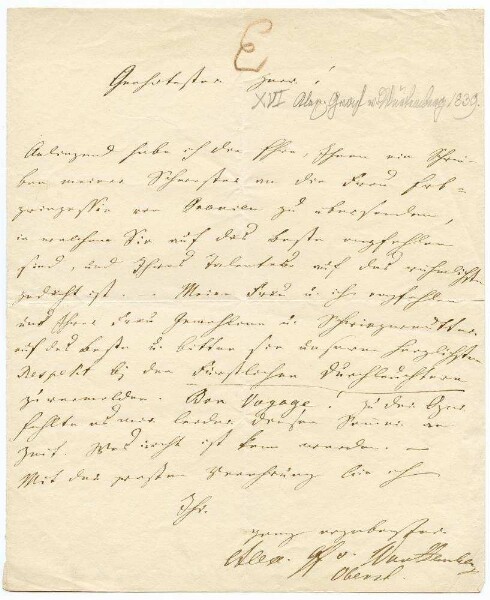 E
Geehrtester Herr!
XVI Alex. Graf v. Württemberg. 1839.
Anliegend habe ich die Ehre, Ihnen ein Schrei-
ben meiner Schwester an die Frau Erb-
prinzessin von zu übersenden,
in welchem Sie auf das beste empfohlen
sind, und Ihres Talentes auf das rühmlichste
gedacht ist. Meine Frau u. ich empfehlen
uns Ihrer Frau Gemahlinn u. Schwiegermutter
auf das beste u. bitten Sie unseren herzlichsten
Respekt bei den Fürstlichen Durchlauchten
zu vermelden. Bon Voyage! Zu der Oper
fehlte es mir leider diesen Sommer an
Zeit. ist kein
Mit der größten Verehrung bin ich
Ihr
ganz ergebenster
Alex. Gf v. Württemberg
Oberst.